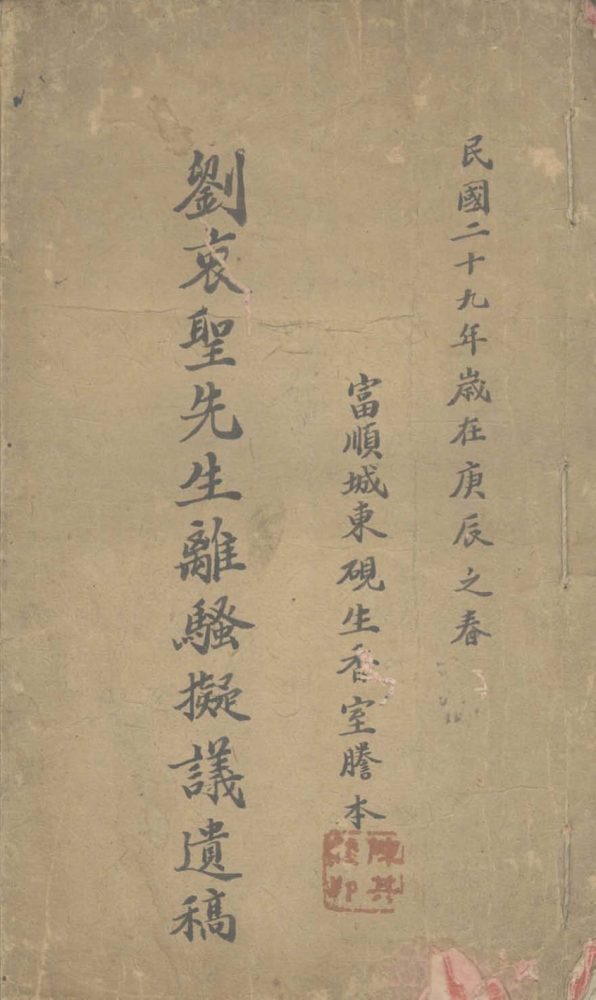 民國二十九年歲在庚辰之春
富順城東硯生香室謄本
劉哀聖先生離騷擬議遺稿